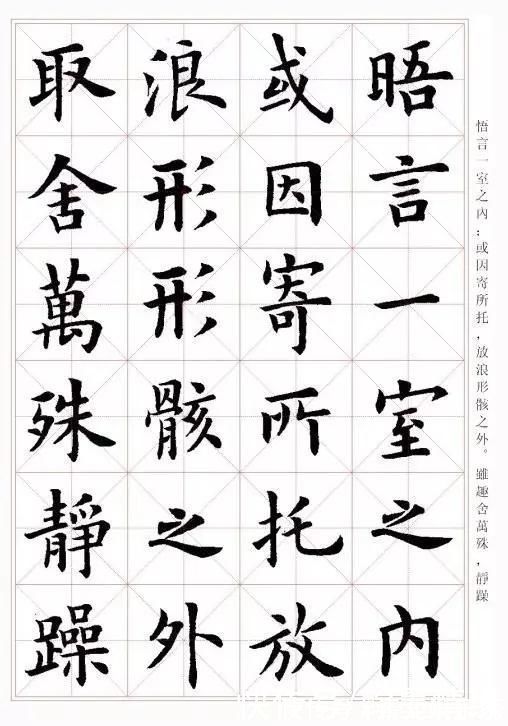 晤言一室之内
或因寄所托放
浪形形骸之外
取舍萬殊靜躁
悟言一室之內；或因寄所托，放浪形骸之外。雖趣舍萬殊，靜躁